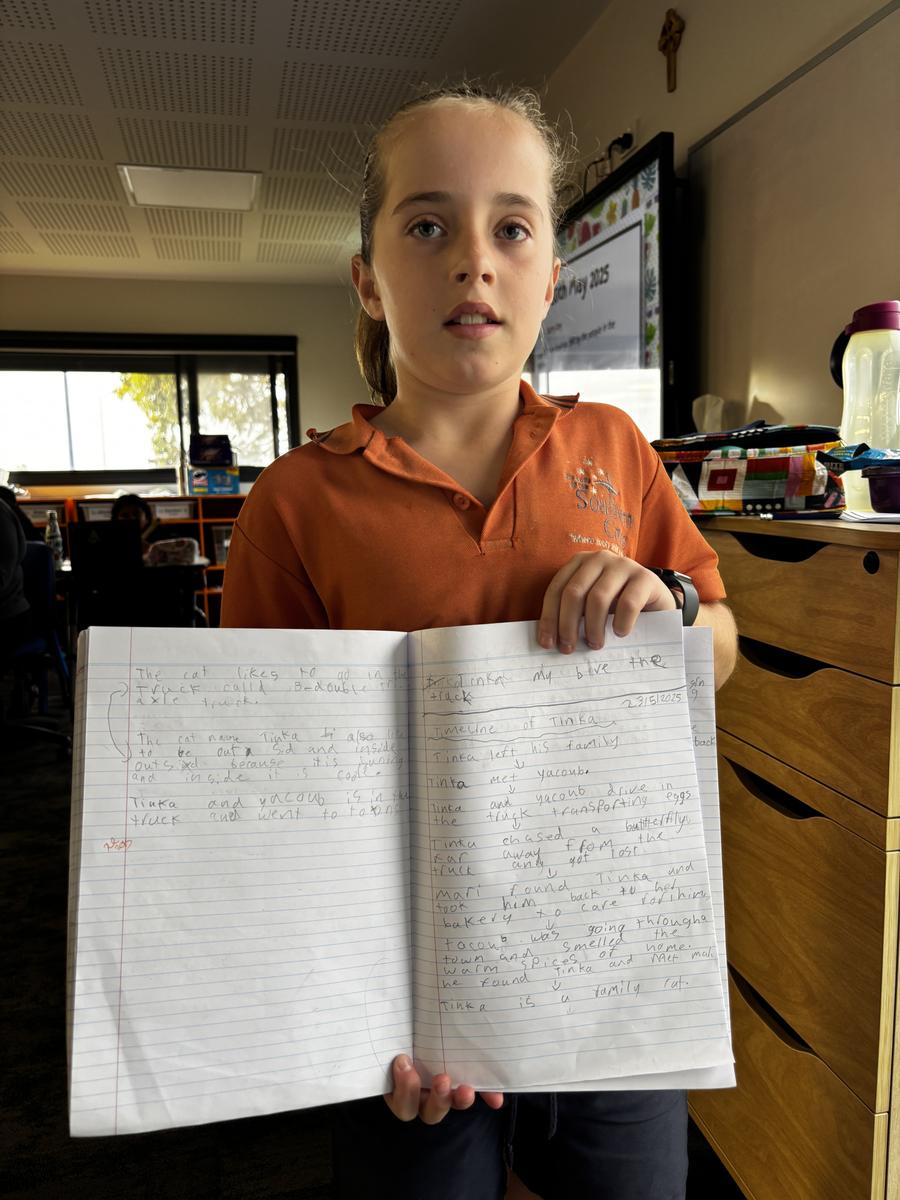 May 2025
The cat likes to go in the
Truck calld B-double
axle truck.
The cat name Tinka is also
to be out a sid and inside
outsid because it is
and inside it is
Tinka and yacoub is in
truck and went to
my the
track
23/5/2025
Timeline of Tinka
Tinka left his family
↓
Tinka met yacoub.
↓
Tinka and yacoub drive in
the truck transporting eggs
↓
Tinka chased a buttterfly
far away from the
truck and got lost.
↓
Mari found Tinka and
took him back to her
bakery to care for him
↓
Yacoub was going through a
town and smelled the
warm spices of home.
he found Tinka and Met mari
↓
Tinka is a family cat.
↓
back